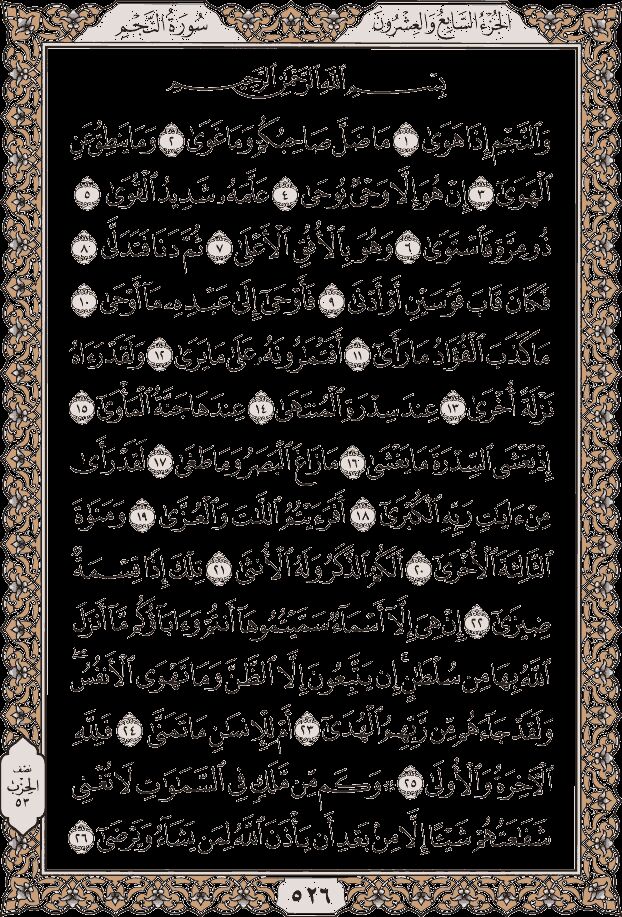 الجزء السابع والعشرون
سورة النجم
بِسْمِ ٱللَّهِ ٱلرَّحْمَٰنِ ٱلرَّحِيمِ
وَٱلنَّجْمِ إِذَا هَوَىٰ ١ مَا ضَلَّ صَاحِبُكُمْ وَمَا غَوَىٰ ٢ وَمَا يَنطِقُ عَنِ
ٱلْهَوَىٰٓ ٣ إِنْ هُوَ إِلَّا وَحْىٌ يُوحَىٰ ٤ عَلَّمَهُۥ شَدِيدُ ٱلْقُوَىٰ ٥
ذُو مِرَّةٍ فَٱسْتَوَىٰ ٦ وَهُوَ بِٱلْأُفُقِ ٱلْأَعْلَىٰ ٧ ثُمَّ دَنَا فَتَدَلَّىٰ ٨
فَكَانَ قَابَ قَوْسَيْنِ أَوْ أَدْنَىٰ ٩ فَأَوْحَىٰٓ إِلَىٰ عَبْدِهِۦ مَآ أَوْحَىٰ ١٠
مَا كَذَبَ ٱلْفُؤَادُ مَا رَأَىٰٓ ١١ أَفَتُمَٰرُونَهُۥ عَلَىٰ مَا يَرَىٰ ١٢ وَلَقَدْ رَءَاهُ
نَزْلَةً أُخْرَىٰ ١٣ عِندَ سِدْرَةِ ٱلْمُنتَهَىٰ ١٤ عِندَهَا جَنَّةُ ٱلْمَأْوَىٰٓ ١٥
إِذْ يَغْشَى ٱلسِّدْرَةَ مَا يَغْشَىٰ ١٦ مَا زَاغَ ٱلْبَصَرُ وَمَا طَغَىٰ ١٧ لَقَدْ رَأَىٰ
مِنْ ءَايَٰتِ رَبِّهِ ٱلْكُبْرَىٰٓ ١٨ أَفَرَءَيْتُمُ ٱللَّٰتَ وَٱلْعُزَّىٰ ١٩ وَمَنَوٰةَ
ٱلثَّالِثَةَ ٱلْأُخْرَىٰٓ ٢٠ أَلَكُمُ ٱلذَّكَرُ وَلَهُ ٱلْأُنثَىٰ ٢١ تِلْكَ إِذًا قِسْمَةٌ
ضِيزَىٰٓ ٢٢ إِنْ هِىَ إِلَّآ أَسْمَآءٌ سَمَّيْتُمُوهَآ أَنتُمْ وَءَابَآؤُكُم مَّآ أَنزَلَ
ٱللَّهُ بِهَا مِن سُلْطَٰنٍ ۚ إِن يَتَّبِعُونَ إِلَّا ٱلظَّنَّ وَمَا تَهْوَى ٱلْأَنفُسُ ۖ
وَلَقَدْ جَآءَهُم مِّن رَّبِّهِمُ ٱلْهُدَىٰٓ ٢٣ أَمْ لِلْإِنسَٰنِ مَا تَمَنَّىٰ ٢٤ فَلِلَّهِ
ٱلْءَاخِرَةُ وَٱلْأُولَىٰ ٢٥ ۞ وَكَم مِّن مَّلَكٍ فِى ٱلسَّمَٰوَٰتِ لَا تُغْنِى
شَفَٰعَتُهُمْ شَيْـًٔا إِلَّا مِنۢ بَعْدِ أَن يَأْذَنَ ٱللَّهُ لِمَن يَشَآءُ وَيَرْضَىٰٓ ٢٦
نصف
الحزب
٥٣
٥٢٦